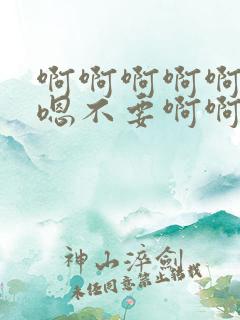 啊啊啊啊啊
嗯不要啊啊
神山淬剑
未经同意禁止转载